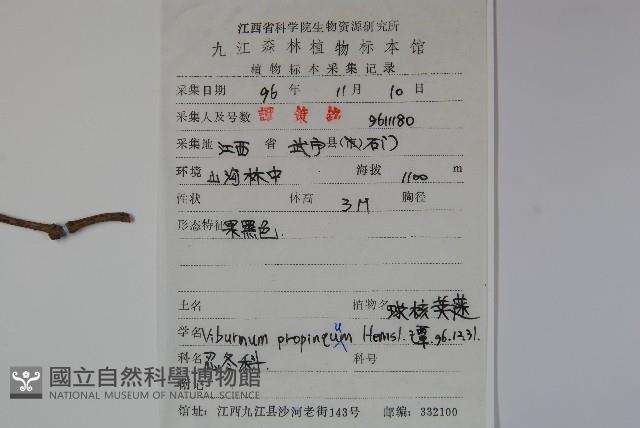 江西省科学院生物资源研究所
九江森林植物标本馆
植物标本采集记录
采集日期 96 年 11 月 10 日
采集人及号数 譚 策 銘 9611180
采集地 江西 省 武宁 县(市) 石门
环境 山沟林中 海拔 1100 m
性状 体高 3M 胸径
形态特征 果黑色.
土名 植物名 球核荚蒾
学名 Viburnum propinquum Hemsl. 谭 96.12.31.
科名 忍冬科. 科号
附记
國立自然科學博物館
NATIONAL MUSEUM OF NATURAL SCIENCE
馆址: 江西九江县沙河老街143号 邮编: 332100